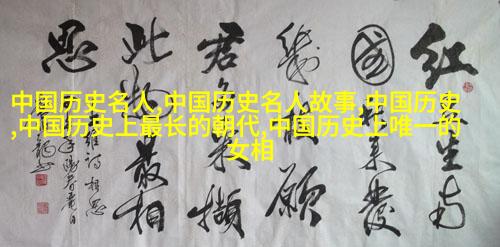 中国历史名人,中国历史名人故事,中国历史
,中国历史上最长的朝代,中国历史上唯一的
女相
红豆生南
國春来發
幾枝願
君多采撷
此物最相
思
维诗相思